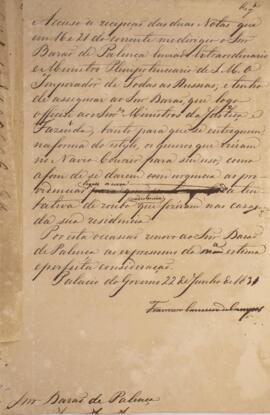 Accuso a recepção das duas Notas que
em 16 e 21 do corrente me dirigio o Snr
Barão de Palença Enviado Extraordinario
e Ministro Plenipotenciario de S. M. O
Imperador de Todas as Russias; e tenho
de assegurar ao Snr. Barão, que logo
officiei aos Snres. Ministros da Justiça e
Fazenda, tanto para que se entreguem
na forma do estylo, os generos que vierão
no Navio Courier para seu uso, como
a fim de se darem com urgencia as pro
videncias a
tativa de roubo que fizerão nas casas
da sua residencia.
Por esta occasião renovo ao Snr Barão
de Palença as expressoens de estima
e perfeita consideração.
Palacio do Governo 22 de Junho de 1831
Francisco Carneiro de Campos
Snr Barão de Palença